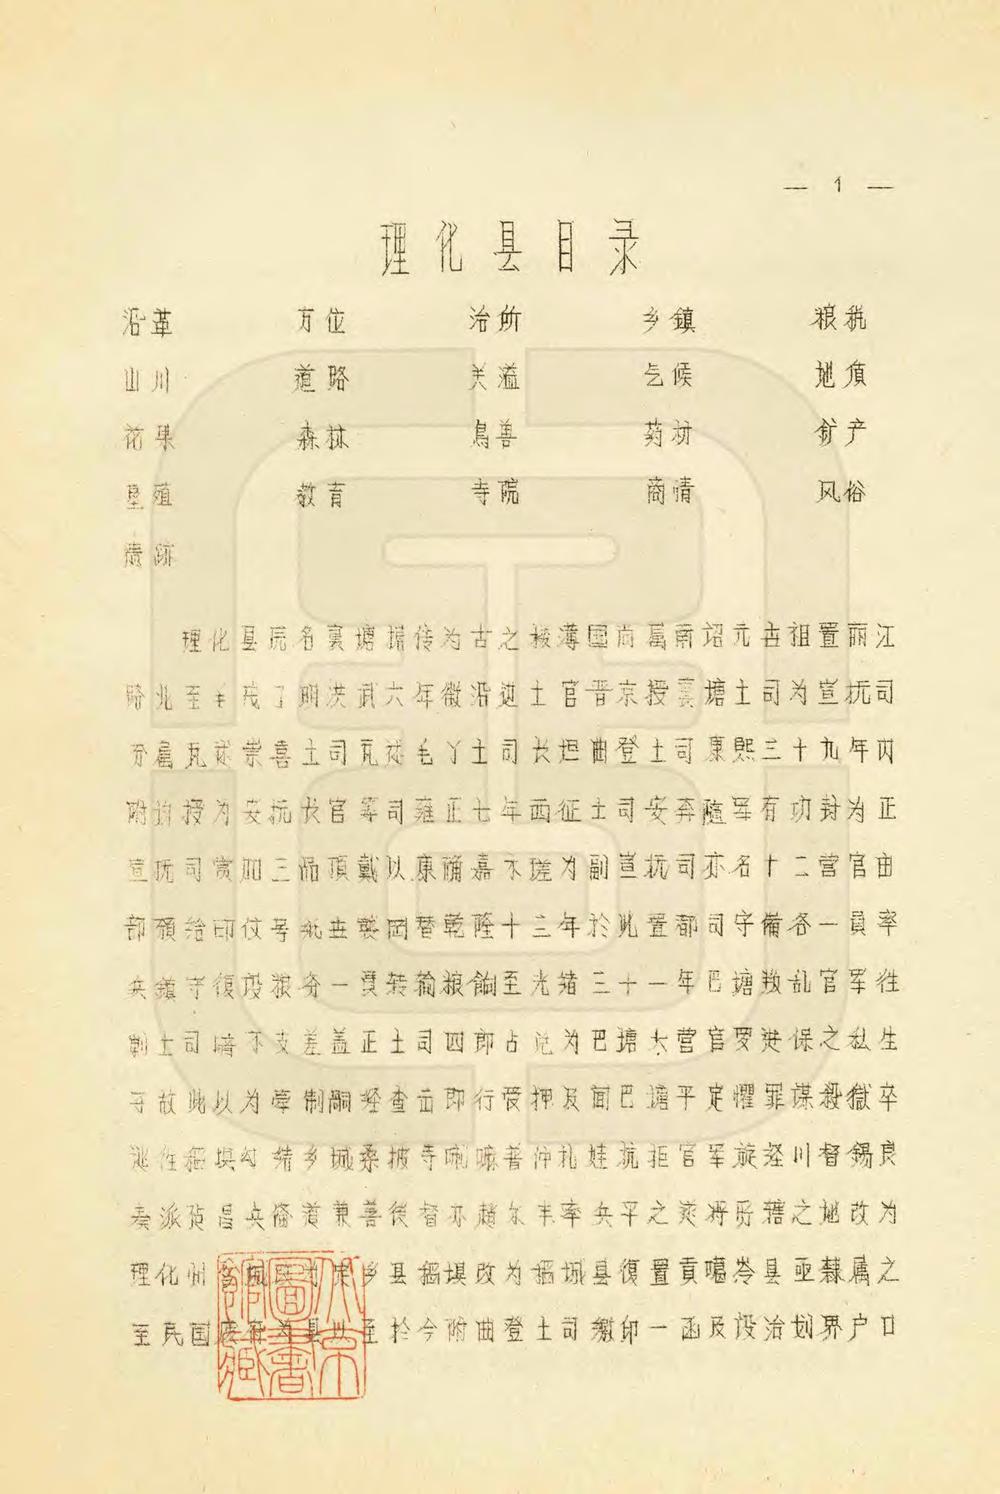 — 1 —
理化县目录
沿革 方位 治所 乡镇 粮税
山川 道路 关溢 气候 地
花果 森林 鳥兽 药材 矿产
垦殖 教育 寺院 商情 风俗
跡
理化县 名裏塘 传为古之 国尚属南诏元 祖置丽江
路北至 明洪武六年徵沿边土官晋京授裏塘土司为宣抚司
分属瓦述崇喜土司瓦述毛丫土司长坦曲登土司康熙三十九年内
附均授为安抚长官等司雍正七年西征土司安奔隨军有功封为正
宣抚司赏加三品頂戴以康 嘉木 为副宣抚司亦名十二营官由
部頒给印 号 乾隆十三年於此置都司守備各一員率
兵鎮守復設粮务一員转输粮餉至光绪三十一年巴塘叛乱官军往
剿土司 不支差盖正土司四郎占 为巴塘大营官罗进保之私生
子故此以为牵制嗣经查 即行管押及面巴塘平定懼罪谋殺獄卒
逃往稻埧勾结乡城桑披寺喇嘛普仲札娃抗拒官军旋经川督錫良
奏派 兵 道兼善後督 趙尔丰率兵平之 将所轄之地改为
理化州 乡县稻埧改为稻城县復置貢噶岺县 隸属之
至民国 县以至於今附曲登土司缴印一函及設治划界户口